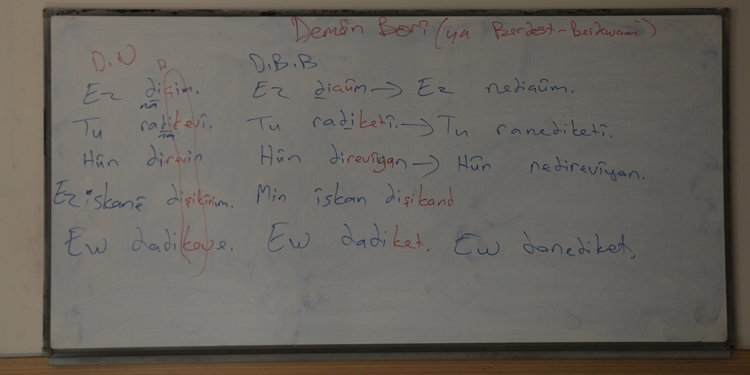 Demên Borî (ya Berdest-Berdewam)
D.N R D.B.B
Ez diçim. Ez diçûm → Ez nediçûm.
na
Tu radikevî. Tu radiketî. → Tu ranediketî.
na
Hûn direvin Hûn direvîyan → Hûn nedirevîyan.
Ez îskanê dişikînim. Min îskan dişikand
Ew dadikeve. Ew dadiket. Ew danediket.